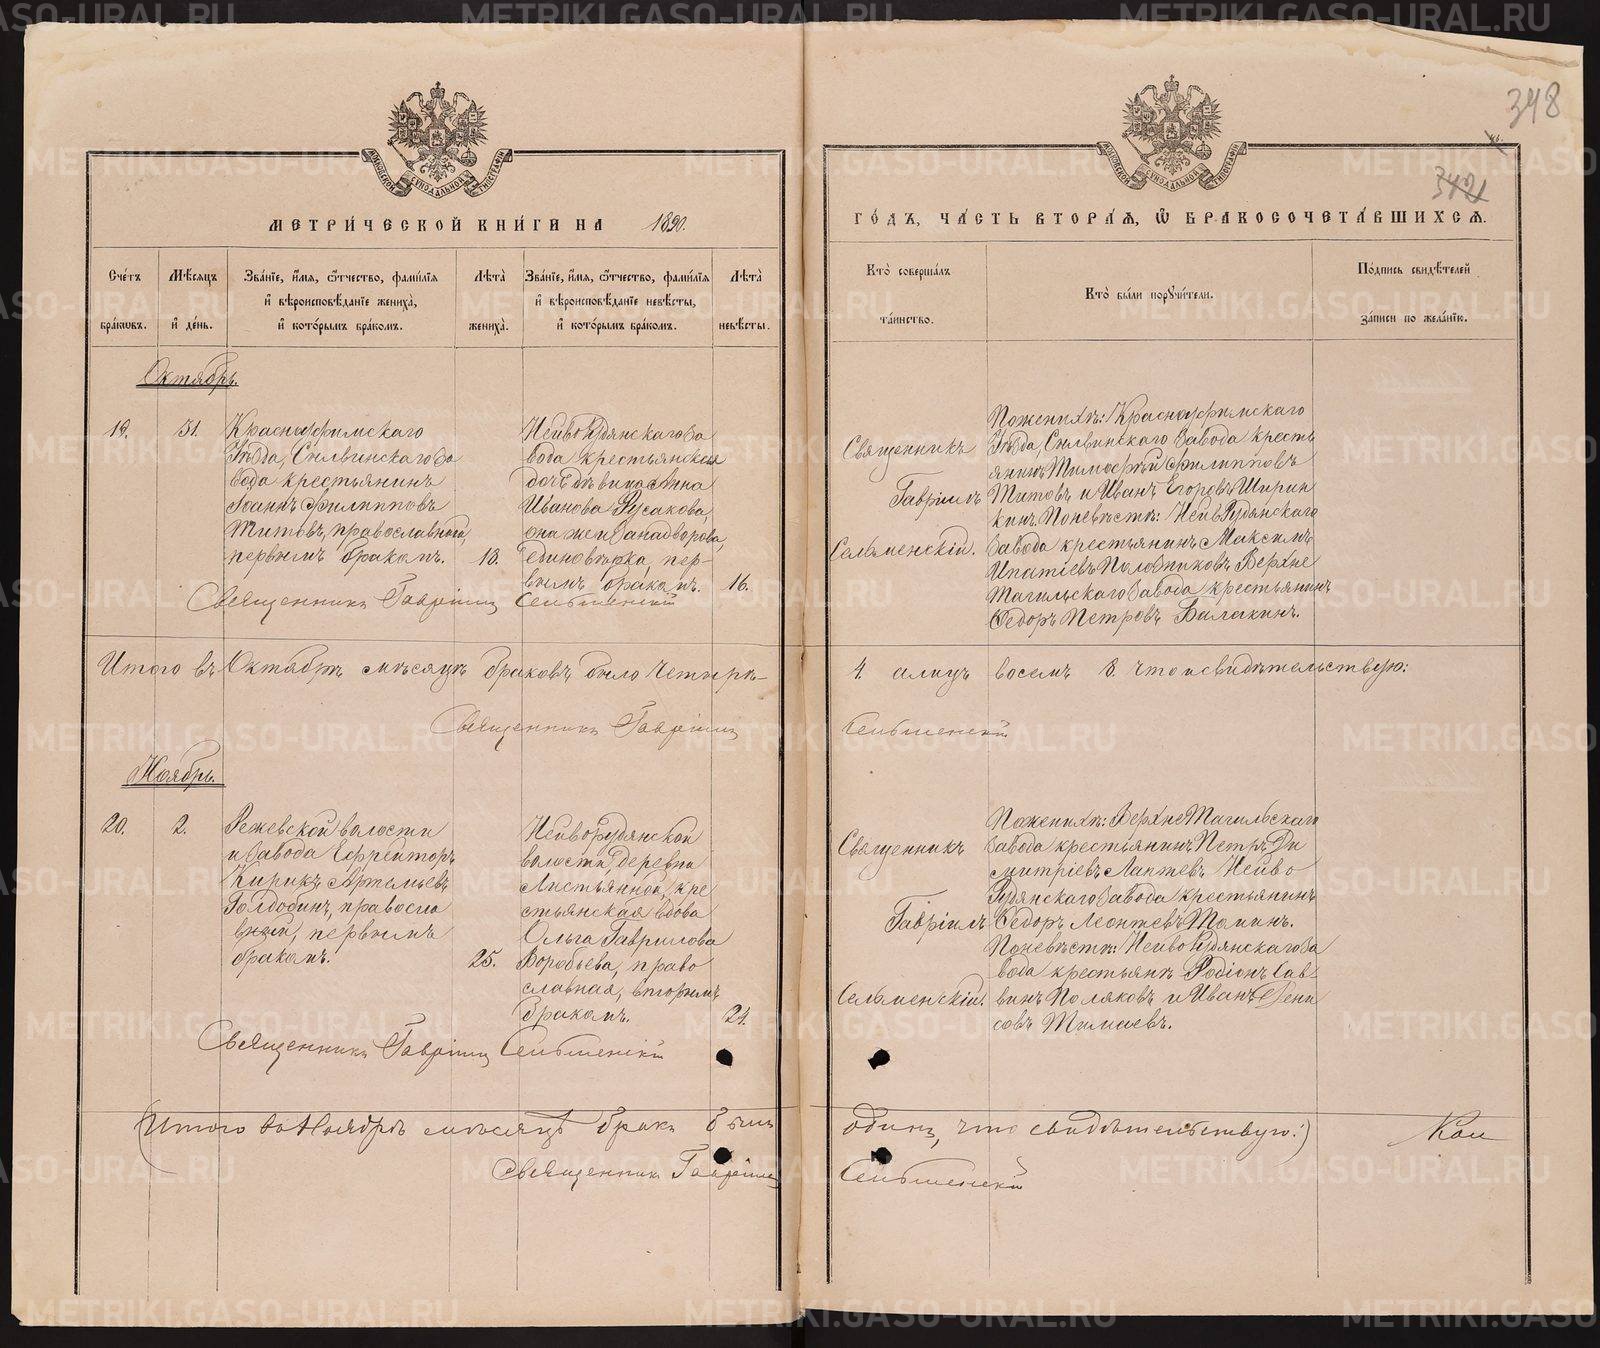 348
342
МЕТРИ́ЧЕСКОЙ КНИ́ГИ НА 1890.
ГО́ДЪ, ЧА́СТЬ ВТОРА́Я, Ѿ БРАКОСОЧЕТА́ВШИХСЯ.
Сче́тъ бра́кѡвъ.
Мѣ́сяцъ и҆ де́нь.
Зва́нїе, и҆́мя, ѻ҆́тчество, фами́лїя
и҆ вѣроисповѣ́данїе жениха̀,
и҆ кото́рымъ бра́комъ.
Лѣ́та жениха̀.
Зва́нїе, и҆́мя, ѻ҆́тчество, фами́лїя
и҆ вѣроисповѣ́данїе невѣ́сты,
и҆ кото́рымъ бра́комъ.
Лѣ́та невѣ́сты.
Кто̀ соверша́лъ
та́инство.
Кто̀ бы́ли порꙋчи́тели.
По́дпись свидѣ́телей
за́писи по жела́нїю.
Октябрь.
19.
31.
Красноуфимскаго
Уѣзда, Сылвинскаго За
вода крестьянинъ
Іоаннъ Филипповъ
Титовъ, православный,
первымъ бракомъ.
18.
Нейво Рудянскаго За
вода крестьянская
дочь дѣвица Анна
Иванова Русакова,
она же и Западворова,
единовѣрка, пер-
вымъ бракомъ.
16.
Священникъ
Гавріилъ
Сельменскій.
По женихѣ: Красноуфимскаго
Уѣзда, Сылвинскаго Завода кресть
янинъ Тимофѣй Филипповъ
Титовъ и Иванъ Егоровъ Ширин
кинъ. По невѣстѣ: Нейво Рудянскаго
Завода крестьянинъ Максимъ
Ипатіевъ Полозниковъ Верхне
Тагильскаго Завода крестьянинъ
Ѳедоръ Петровъ Балакинъ.
Священникъ Гавріилъ Сельменскій
Итого въ Октябрѣ мѣсяцѣ браковъ было четыре- 4. а лицъ восемь 8. что и свидѣтельствую:
Священникъ Гавріилъ Сельменскій
Ноябрь.
20.
2.
Режевской волости
и Завода Ефрейторъ
Кирикъ Артемьевъ
Голдобинъ, правосла
вный, первымъ
бракомъ.
25.
Нейво Рудянской
волости, деревни
Листьянной, кре
стьянская вдова
Ольга Гаврилова
Воробьева, право
славная, вторымъ
бракомъ.
24.
Священникъ
Гавріилъ
Сельменскій.
По женихѣ: Верхне Тагильскаго
Завода крестьянинъ Петръ Ди
митріевъ Лаптевъ Нейво
Рудянскаго Завода крестьянинъ
Ѳедоръ Леонтьевъ Томинъ.
По невѣстѣ: Нейво Рудянскаго За
вода крестьяне Родіонъ Сав-
винъ Поляковъ и Иванъ Дени
совъ Тимаевъ.
Священникъ Гавріилъ Сельменскій
(Итого въ Ноябрѣ мѣсяцѣ бракъ былъ одинъ, что свидѣтельствую:)
Священникъ Гавріилъ Сельменскій
METRIKI.GASO-URAL.RU